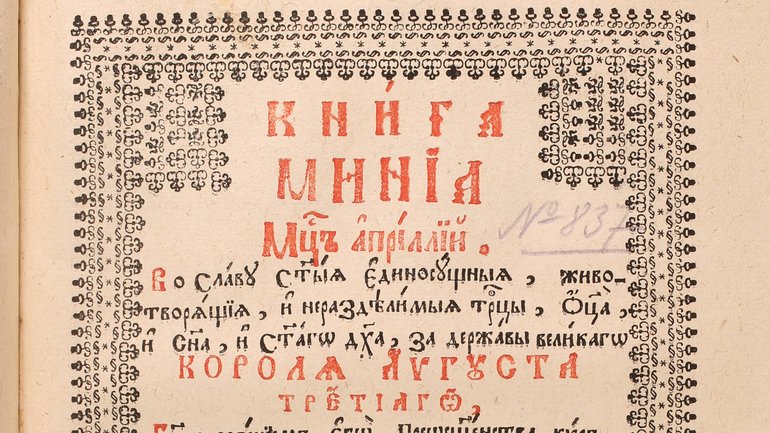 КНИ́ГА
МИНІА
Мцⷭ҇ъ а҆прі́ллїй .
№ 837
Во Сла́ву Ст҃ы́ѧ Є҆диносꙋ́щныѧ , живо-
творѧ́щїѧ , и҆ нераздѣли́мыѧ трⷪ҇цы , Ѻ҆ц҃а̀ ,
и҆ Сн҃а , и҆ Ст҃а́гѡ дх҃а , за держа́вы вели́кагѡ
КОРОЛѦ АѴГꙊСТА
ТРЕ́ТІАГѠ ,